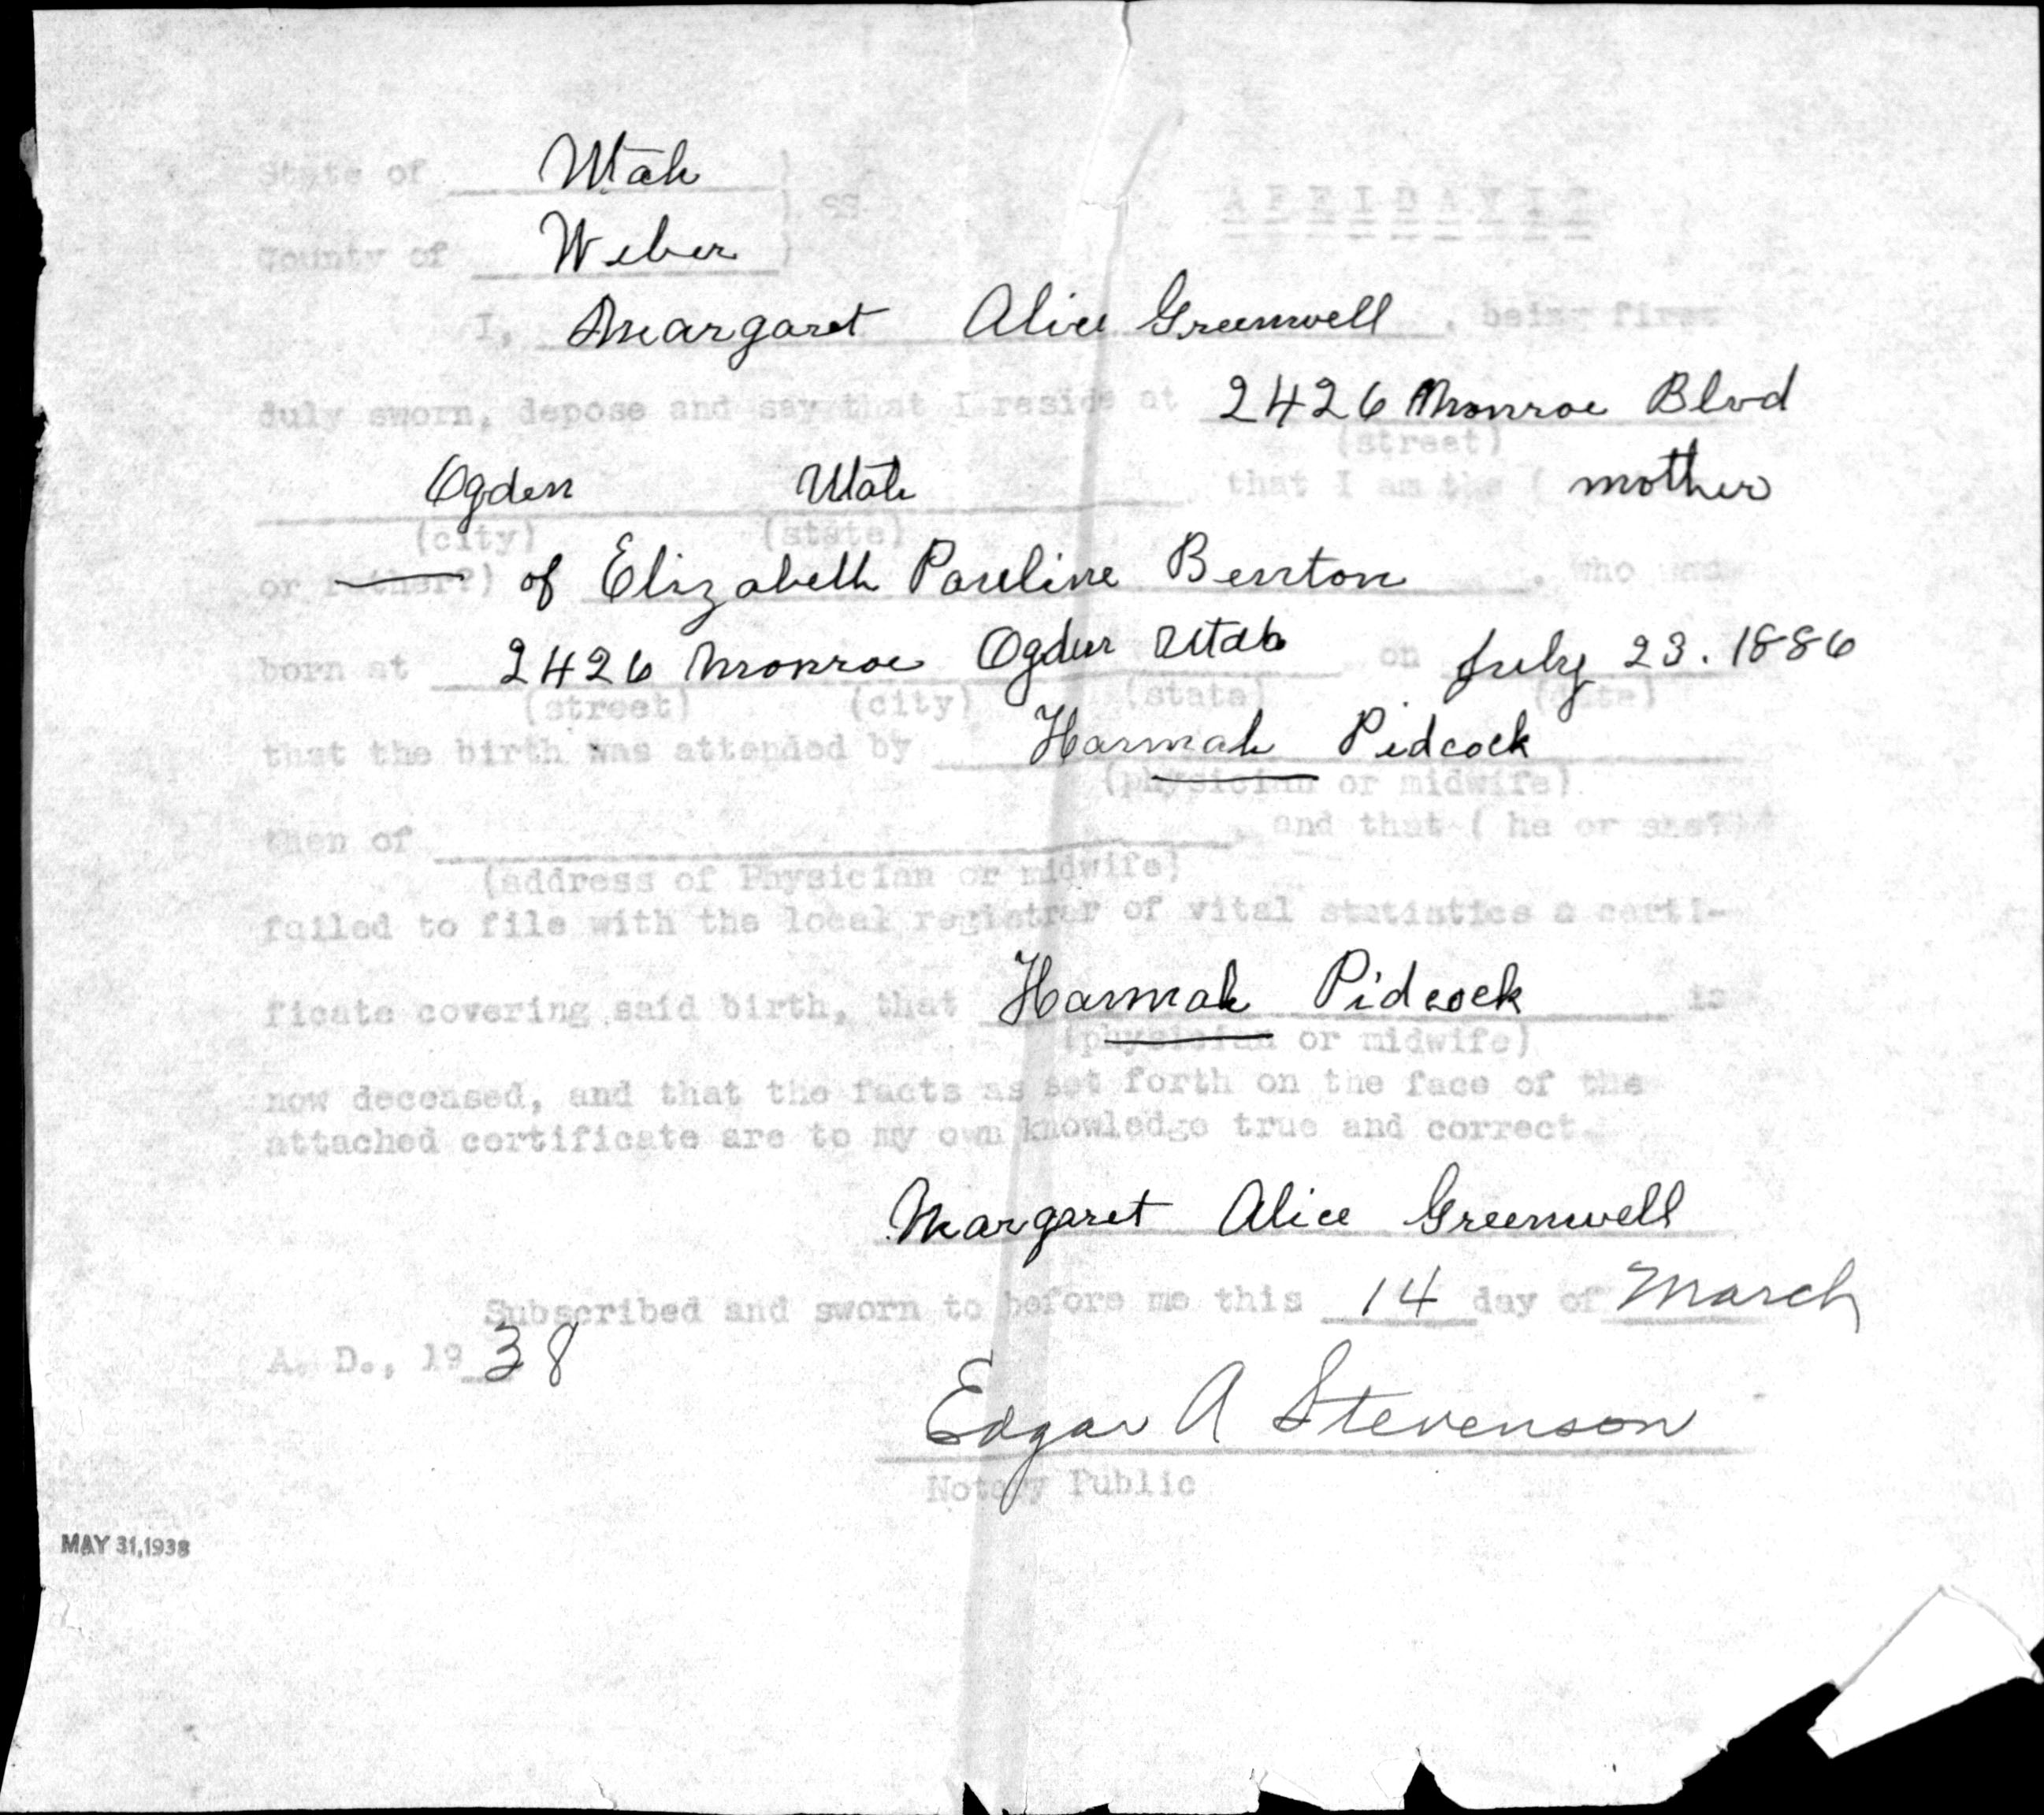 State of Utah )
) ss
AFFIDAVIT
County of Weber )
I, Margaret Alice Greenwell, being first
duly sworn, depose and say that I reside at 2426 Monroe Blvd
(street)
Ogden Utah, that I am the ( mother
(city) (state)
or father?) of Elizabeth Pauline Benton, who was
born at 2426 Monroe Ogden Utah on July 23. 1886
(street) (city) (state) (date)
that the birth was attended by Hannah Pidcock
(physician or midwife)
then of , and that ( he or she?)
(address of Physician or midwife)
failed to file with the local registrar of vital statistics a certi-
ficate covering said birth, that Hannah Pidcock is
(physician or midwife)
now deceased, and that the facts as set forth on the face of the
attached certificate are to my own knowledge true and correct.
Margaret Alice Greenwell
Subscribed and sworn to before me this 14 day of March
A. D., 1938
Edgar A Stevenson
Notary Public
MAY 31,1938